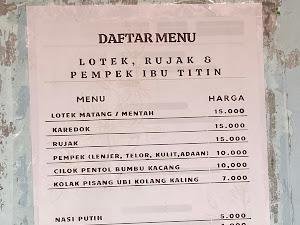 DAFTAR MENU
LOTEK, RUJAK &
PEMPEK IBU TITIN
MENU HARGA
LOTEK MATANG / MENTAH 15.000
KAREDOK 15.000
RUJAK 15.000
PEMPEK (LENJER, TELOR, KULIT,ADAAN) 10.000
CILOK PENTOL BUMBU KACANG 10,000
KOLAK PISANG UBI KOLANG KALING 7.000
NASI PUTIH 5.000